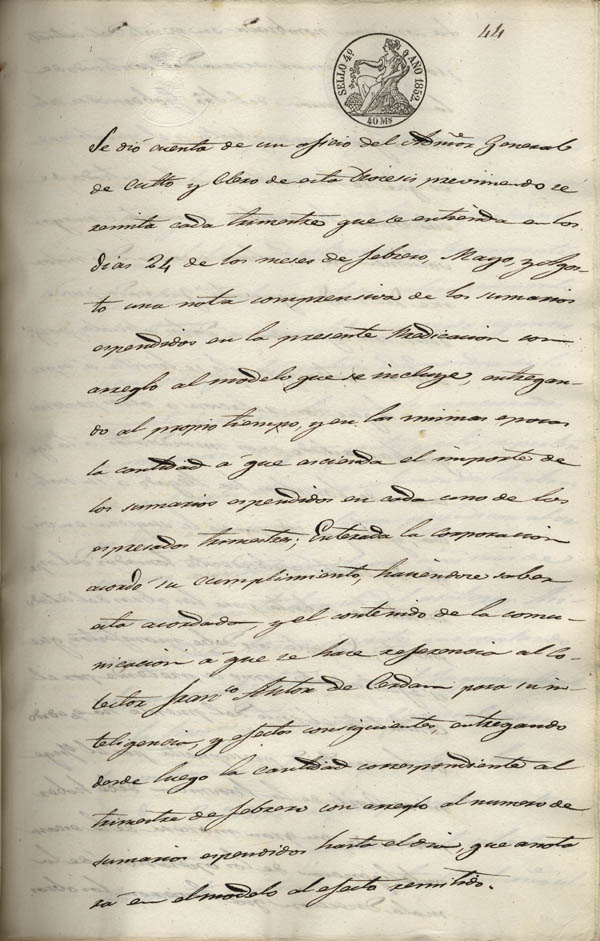 44
SELLO 4º AÑO 1852.
40 Ms
Se dió cuenta de un oficio del Admor General
de Culto y Clero de esta Diocesis previniendo se
remita cada trimestre que se entienda en los
dias 24 de los meses de febrero, Mayo, y Agos-
to una nota comprensiva de los sumarios
espendidos en la presente Predicacion con
arreglo al modelo que se incluye, entregan-
do al propio tiempo, y en las mismas epocas
la cantidad á que ascienda el importe de
los sumarios espendidos en cada uno de los
espresados trimestres; Enterada la corporacion
acordó su cumplimiento, haciendose saber
esta acordada, y el contenido de la comu-
nicacion á que se hace referencia al Co-
lector Franco de Cerdan para su in-
teligencia, y efectos consiguientes, entregando
desde luego la cantidad correspondiente al
trimestre de febrero con arreglo al numero de
sumarios espendidos hasta el dia, que anota
rá en el modelo al efecto remitido.